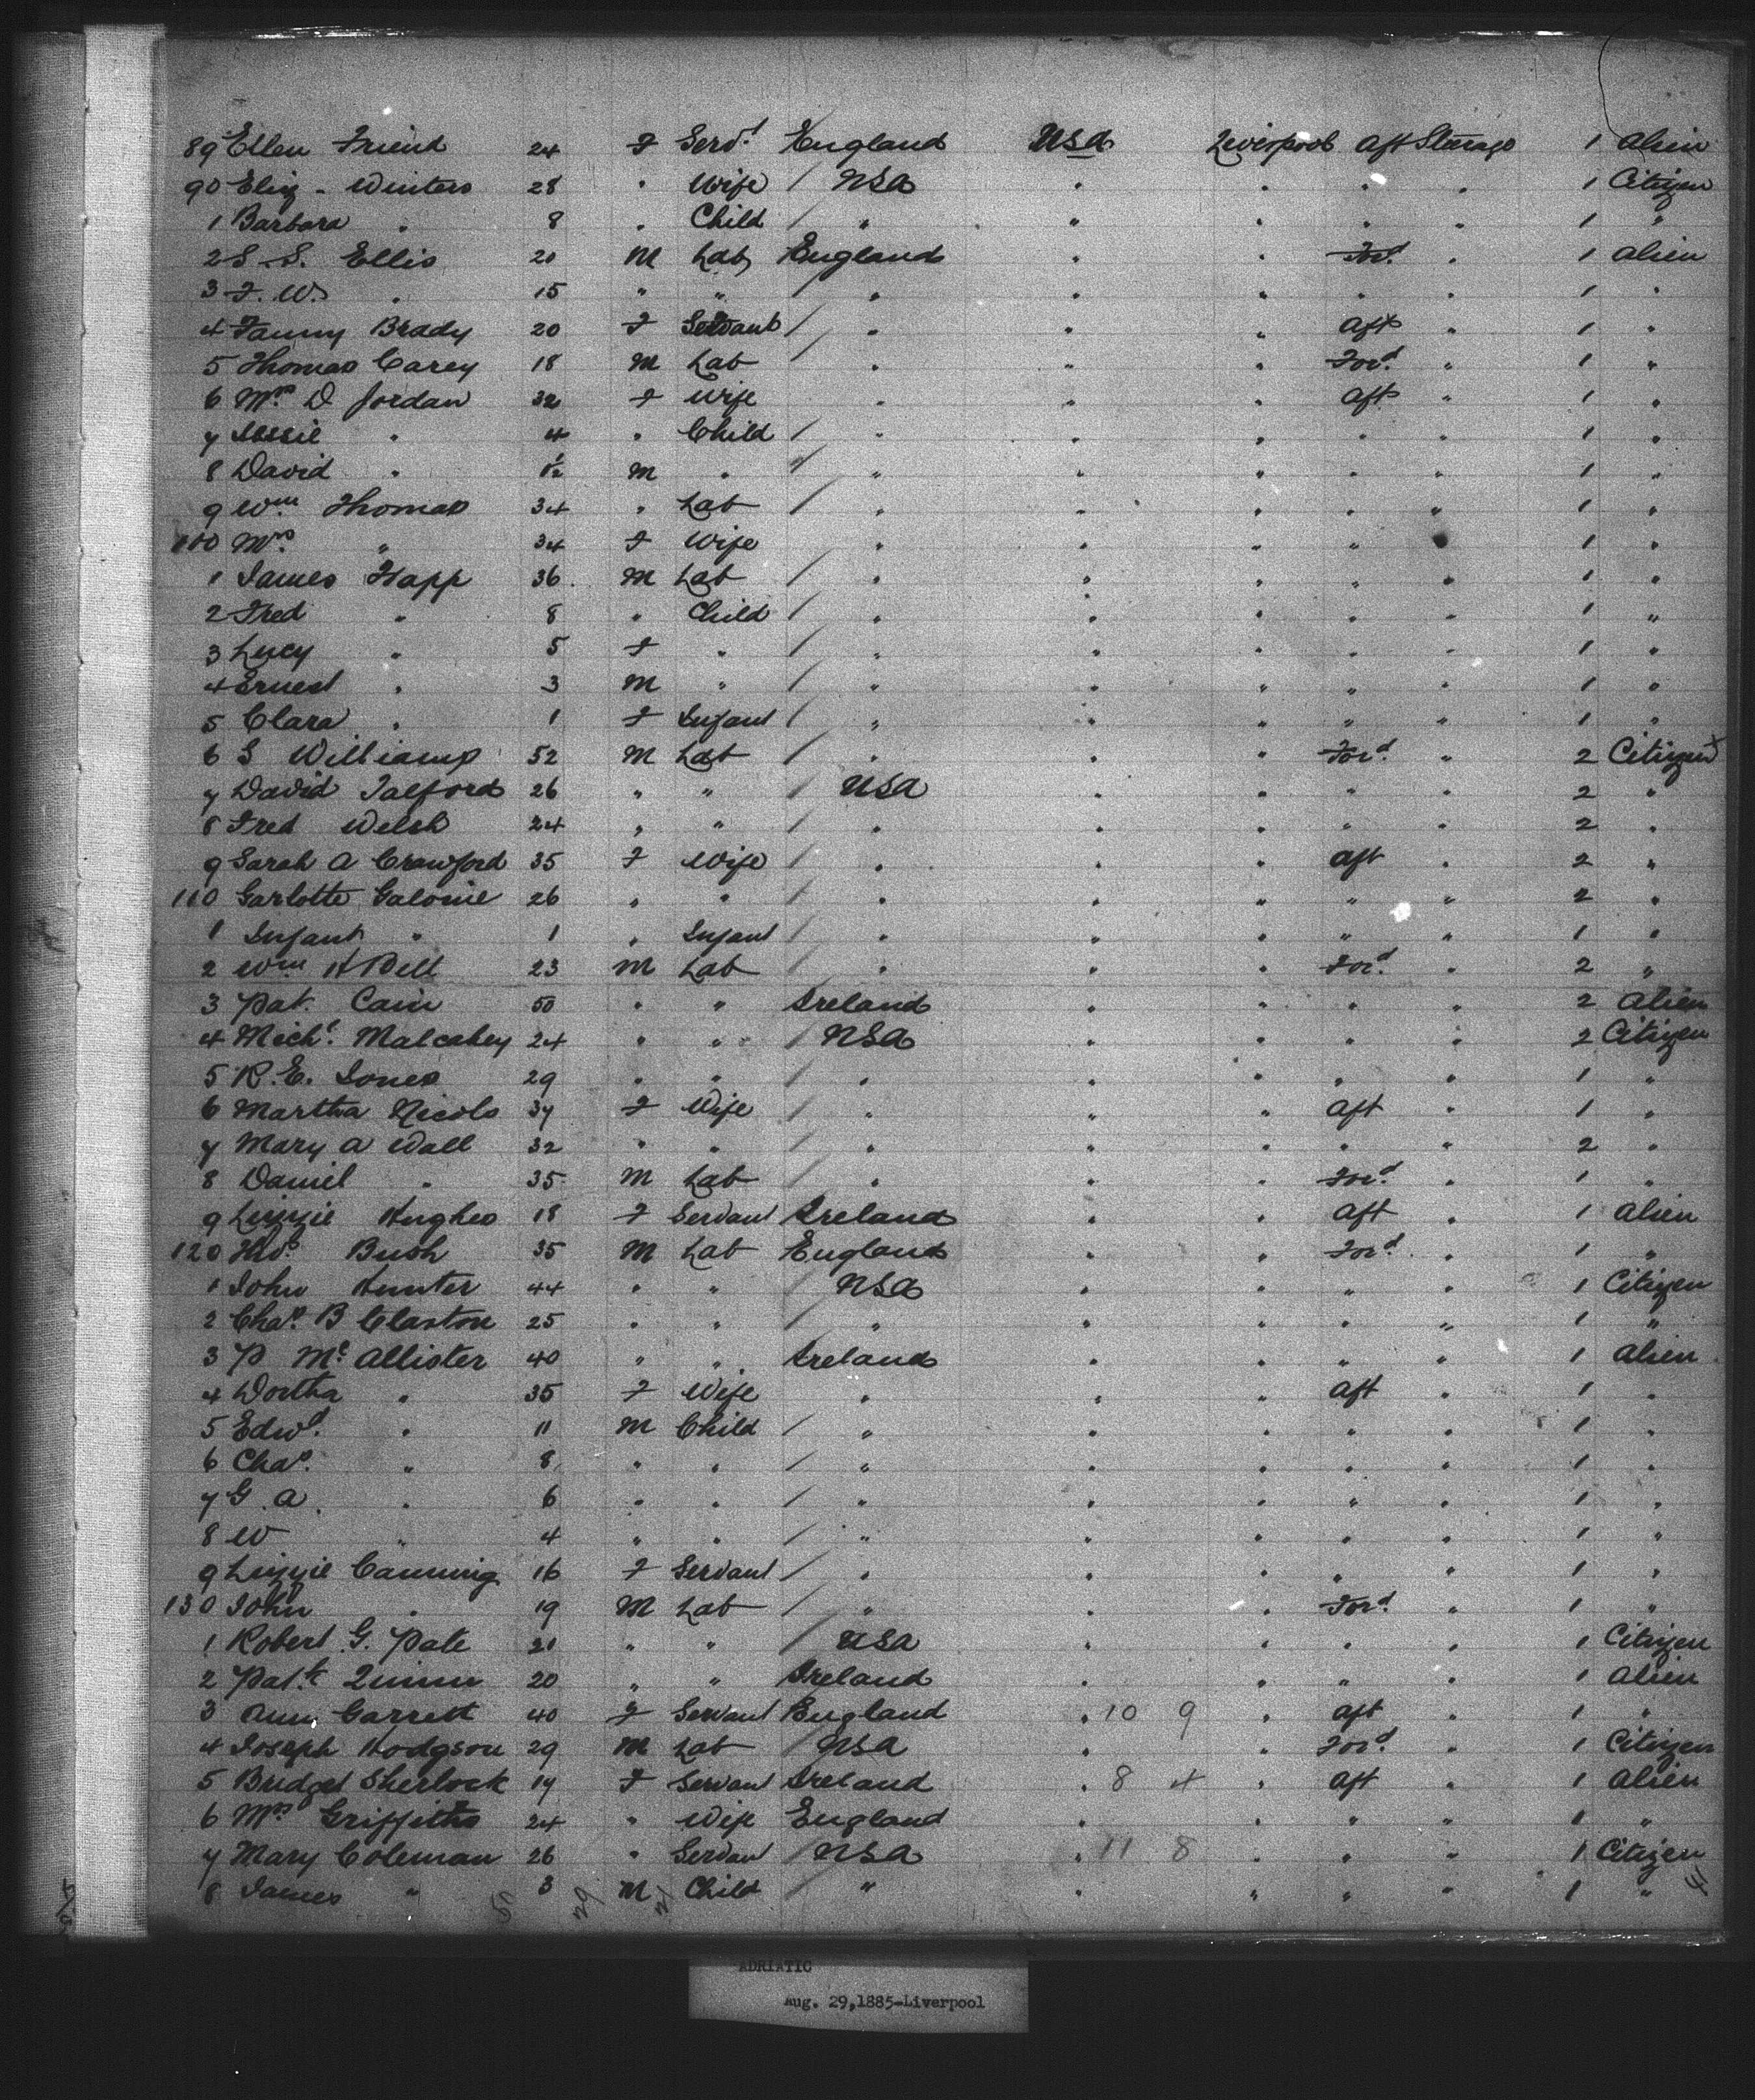 89 Ellen Friend 24 F Servt England USA Liverpool Aft Steerage 1 Alien
90 Eliz - Winters 28 " Wife / USA " " " " 1 Citizen
1 Barbara " 8 " Child / " " " " " 1 "
2 S. S. Ellis 20 M Lab England " " Ford " 1 Alien
3 F. W. " 15 " " / " " " " " 1 "
4 Fanny Brady 20 F Servant / " " " Aft " 1 "
5 Thomas Carey 18 M Lab / " " " Ford " 1 "
6 Mrs D Jordan 32 F Wife " " " Aft " 1 "
7 Jessie " 4 " Child / " " " " " 1 "
8 David " 1½ M " / " " " " " 1 "
9 Wm Thomas 34 " Lab / " " " " " 1 "
100 Mrs " 34 F Wife " " " " " 1 "
1 James Happ 36 M Lab / " " " " " 1 "
2 Fred " 8 " Child / " " " " " 1 "
3 Lucy " 5 F " / " " " " " 1 "
4 Ernest " 3 M " / " " " " " 1 "
5 Clara " 1 F Infant / " " " " " 1 "
6 S Williams 52 M Lab / " " " Ford " 2 Citizen x
7 David Talford 26 " " / USA " " " " 2 "
8 Fred Welsh 24 " " / " " " " " 2 "
9 Sarah A Crawford 35 F Wife / " " " Aft " 2 "
110 Garlotte Galonie 26 " " / " " " " " 2 "
1 Infant " 1 " Infant / " " " " " 1 "
2 Wm H Bell 23 M Lab / " " " Ford " 2 "
3 Pat. Cain 50 " " Ireland " " " " 2 Alien
4 Michl Malcahey 24 " " / USA " " " " 2 Citizen
5 R. E. Jones 29 " " / " " " " " 1 "
6 Martha Nicols 37 F Wife / " " " Aft " 1 "
7 Mary A Wall 32 " " / " " " " " 2 "
8 Daniel " 35 M Lab / " " " Ford " 1 "
9 Lizzie Hughes 18 F Servant Ireland " " Aft " 1 Alien
120 Thos Bush 35 M Lab England " " Ford " 1 "
1 John Hunter 44 " " / USA " " " " 1 Citizen
2 Chas B Claxton 25 " " / " " " " " 1 "
3 P McAllister 40 " " Ireland " " " " 1 Alien
4 Dortha " 35 F Wife " " " Aft " 1 "
5 Edwd " 11 M Child / " " " " " 1 "
6 Chas " 8 " " / " " " " " 1 "
7 G. A. " 6 " " / " " " " " 1 "
8 W " 4 " " / " " " " " 1 "
9 Lizzie Canning 16 F Servant / " " " " " 1 "
130 John " 19 M Lab / " " " Ford " 1 "
1 Robert G. Pate 21 " " / USA " " " " 1 Citizen
2 Patk Quinn 20 " " Ireland " " " " 1 Alien
3 Ann Garrett 40 F Servant England " 10 9 " Aft " 1 "
4 Joseph Hodgson 29 M Lab / USA " " Ford " 1 Citizen
5 Bridget Sherlock 17 F Servant Ireland " 8 4 " Aft " 1 Alien
6 Mrs Griffiths 24 " Wife England " " " " 1 "
7 Mary Coleman 26 " Servan / USA " 11 8 " " " 1 Citizen
8 James " 3 M Child / " " " " " 1 "
ADRIATIC
Aug. 29,1885-Liverpool